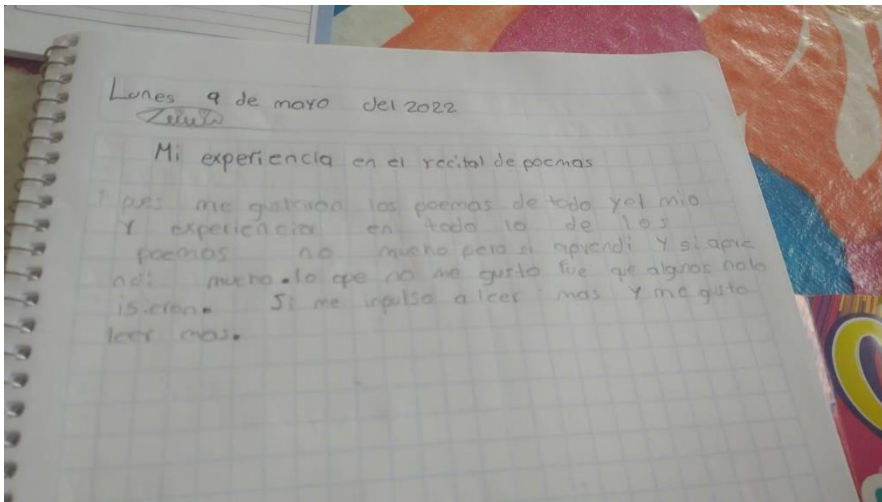 Lunes 9 de mayo del 2022
Mi experiencia en el recital de poemas
pues me gustaron los poemas de todo y el mio
Y experiencia en todo lo de los
poemas no mucho pero si aprendi Y si apre
ndi mucho. lo que no me gusto fue que algunos no lo
isieron. Si me inpulso a leer mas Y me gusto
leer mas.